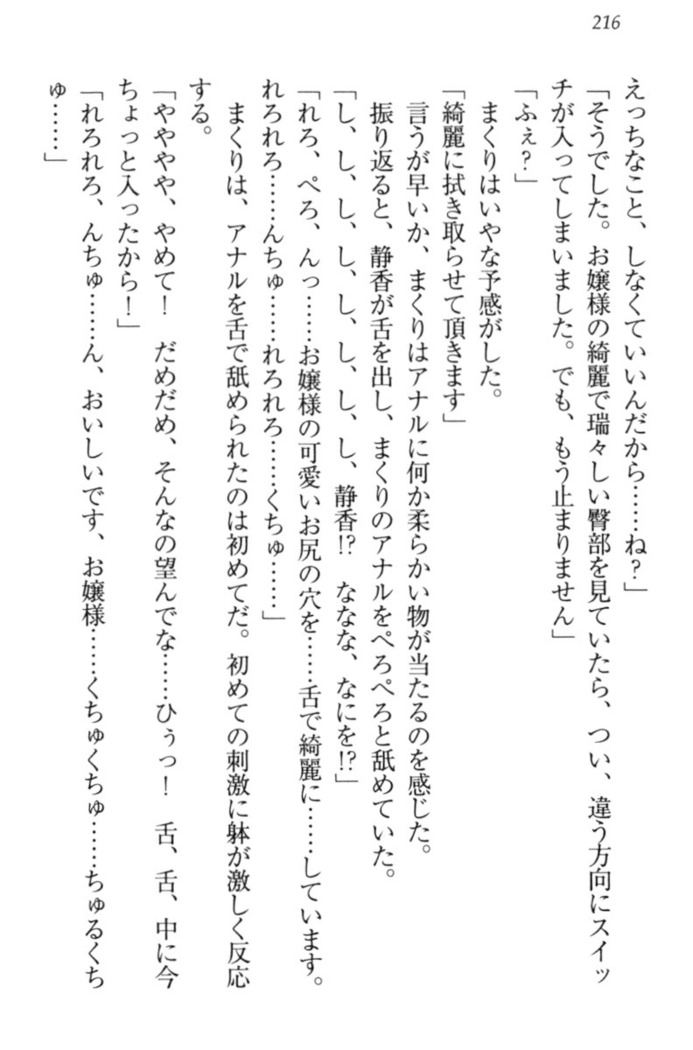 216
えっちなこと、しなくていいんだから……ね？」
「そうでした。お嬢様の綺麗で瑞々しい臀部を見ていたら、つい、違う方向にスイッ
チが入ってしまいました。でも、もう止まりません」
「ふぇ？」
まくりはいやな予感がした。
「綺麗に拭き取らせて頂きます」
言うが早いか、まくりはアナルに何か柔らかい物が当たるのを感じた。
振り返ると、静香が舌を出し、まくりのアナルをぺろぺろと舐めていた。
「し、し、し、し、し、し、し、静香!?　ななな、なにを!?」
「れろ、ぺろ、んっ……お嬢様の可愛いお尻の穴を……舌で綺麗に……しています。
れろれろ……んちゅ……れろれろ……くちゅ……」
まくりは、アナルを舌で舐められたのは初めてだ。初めての刺激に躰が激しく反応
する。
「ややや、やめて！　だめだめ、そんなの望んでな……ひぅっ！　舌、舌、中に今
ちょっと入ったから！」
「れろれろ、んちゅ……ん、おいしいです、お嬢様……くちゅくちゅ……ちゅるくち
ゅ……」